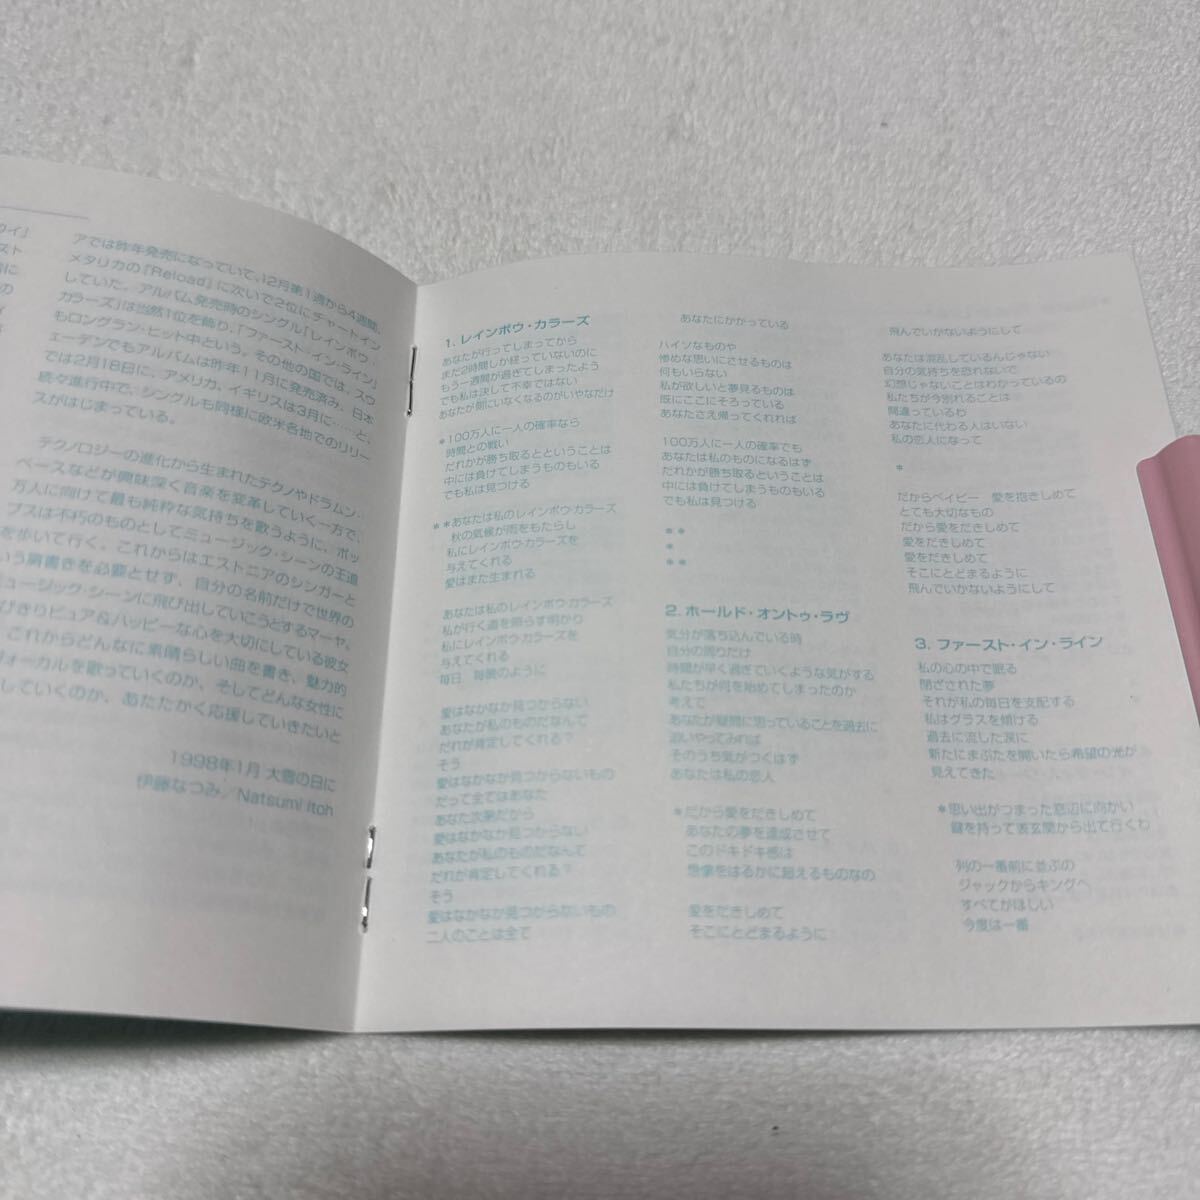 タイ」
スト
前に
の
アでは昨年発売になっていて、12月第1週から4週間、
メタリカの『Reload』に次いで2位にチャートイン
していた。アルバム発売時のシングル「レインボウ・
カラーズ」は当然1位を飾り、「ファースト・イン・ライン」
もロングラン・ヒット中という。その他の国では、スウ
ェーデンでもアルバムは昨年11月に発売済み、日本
では2月18日に、アメリカ、イギリスは3月に……と、
続々進行中で、シングルも同様に欧米各地でのリリー
スがはじまっている。
テクノロジーの進化から生まれたテクノやドラムン・
ベースなどが興味深く音楽を変革していく一方で、
万人に向けて最も純粋な気持ちを歌うように、ポッ
プスは不朽のものとしてミュージック・シーンの王道
を歩いて行く。これからはエストニアのシンガーと
いう肩書きを必要とせず、自分の名前だけで世界の
ミュージック・シーンに飛び出していこうとするマーヤ。
びきりピュア&ハッピーな心を大切にしている彼女
、これからどんなに素晴らしい曲を書き、魅力的
ヴォーカルを歌っていくのか、そしてどんな女性に
していくのか、あたたかく応援していきたいと
1998年1月 大雪の日に
伊藤なつみ/Natsumi Itoh
1. レインボウ・カラーズ
あなたが行ってしまってから
まだ2時間しか経っていないのに
もう一週間が過ぎてしまったよう
でも私は決して不幸ではない
あなたが側にいなくなるのがいやなだけ
*100万人に一人の確率なら
時間との戦い
だれかが勝ち取るとということは
中には負けてしまうものもいる
でも私は見つける
**あなたは私のレインボウ・カラーズ
秋の気候が雨をもたらし
私にレインボウ・カラーズを
与えてくれる
愛はまた生まれる
あなたは私のレインボウ・カラーズ
私が行く道を照らす明かり
私にレインボウ・カラーズを
与えてくれる
毎日 毎晩のように
愛はなかなか見つからない
あなたが私のものだなんて
だれが肯定してくれる?
そう
愛はなかなか見つからないもの
だって全てはあなた
あなた次第だから
愛はなかなか見つからない
あなたが私のものだなんて
だれが肯定してくれる?
そう
愛はなかなか見つからないもの
二人のことは全て
あなたにかかっている
ハイソなものや
惨めな思いにさせるものは
何もいらない
私が欲しいと夢見るものは
既にここにそろっている
あなたさえ帰ってくれれば
100万人に一人の確率でも
あなたは私のものになるはず
だれかが勝ち取るということは
中には負けてしまうものもいる
でも私は見つける
**
*
**
2. ホールド・オントゥ・ラヴ
気分が落ち込んでいる時
自分の周りだけ
時間が早く過ぎていくような気がする
私たちが何を始めてしまったのか
考えて
あなたが疑問に思っていることを過去に
追いやってみれば
そのうち気がつくはず
あなたは私の恋人
*だから愛をだきしめて
あなたの夢を達成させて
このドキドキ感は
想像をはるかに超えるものなの
愛をだきしめて
そこにとどまるように
飛んでいかないようにして
あなたは混乱しているんじゃない
自分の気持を恐れないで
幻想じゃないことはわかっているの
私たちが今別れることは
間違っているわ
あなたに代わる人はいない
私の恋人になって
*
だからベイビー 愛を抱きしめて
とても大切なもの
だから愛をだきしめて
愛をだきしめて
愛をだきしめて
そこにとどまるように
飛んでいかないようにして
3. ファースト・イン・ライン
私の心の中で眠る
閉ざされた夢
それが私の毎日を支配する
私はグラスを傾ける
過去に流した涙に
新たにまぶたを開いたら希望の光が
見えてきた
*思い出がつまった窓辺に向かい
鍵を持って表玄関から出て行くわ
列の一番前に並ぶの
ジャックからキングへ
すべてがほしい
今度は一番